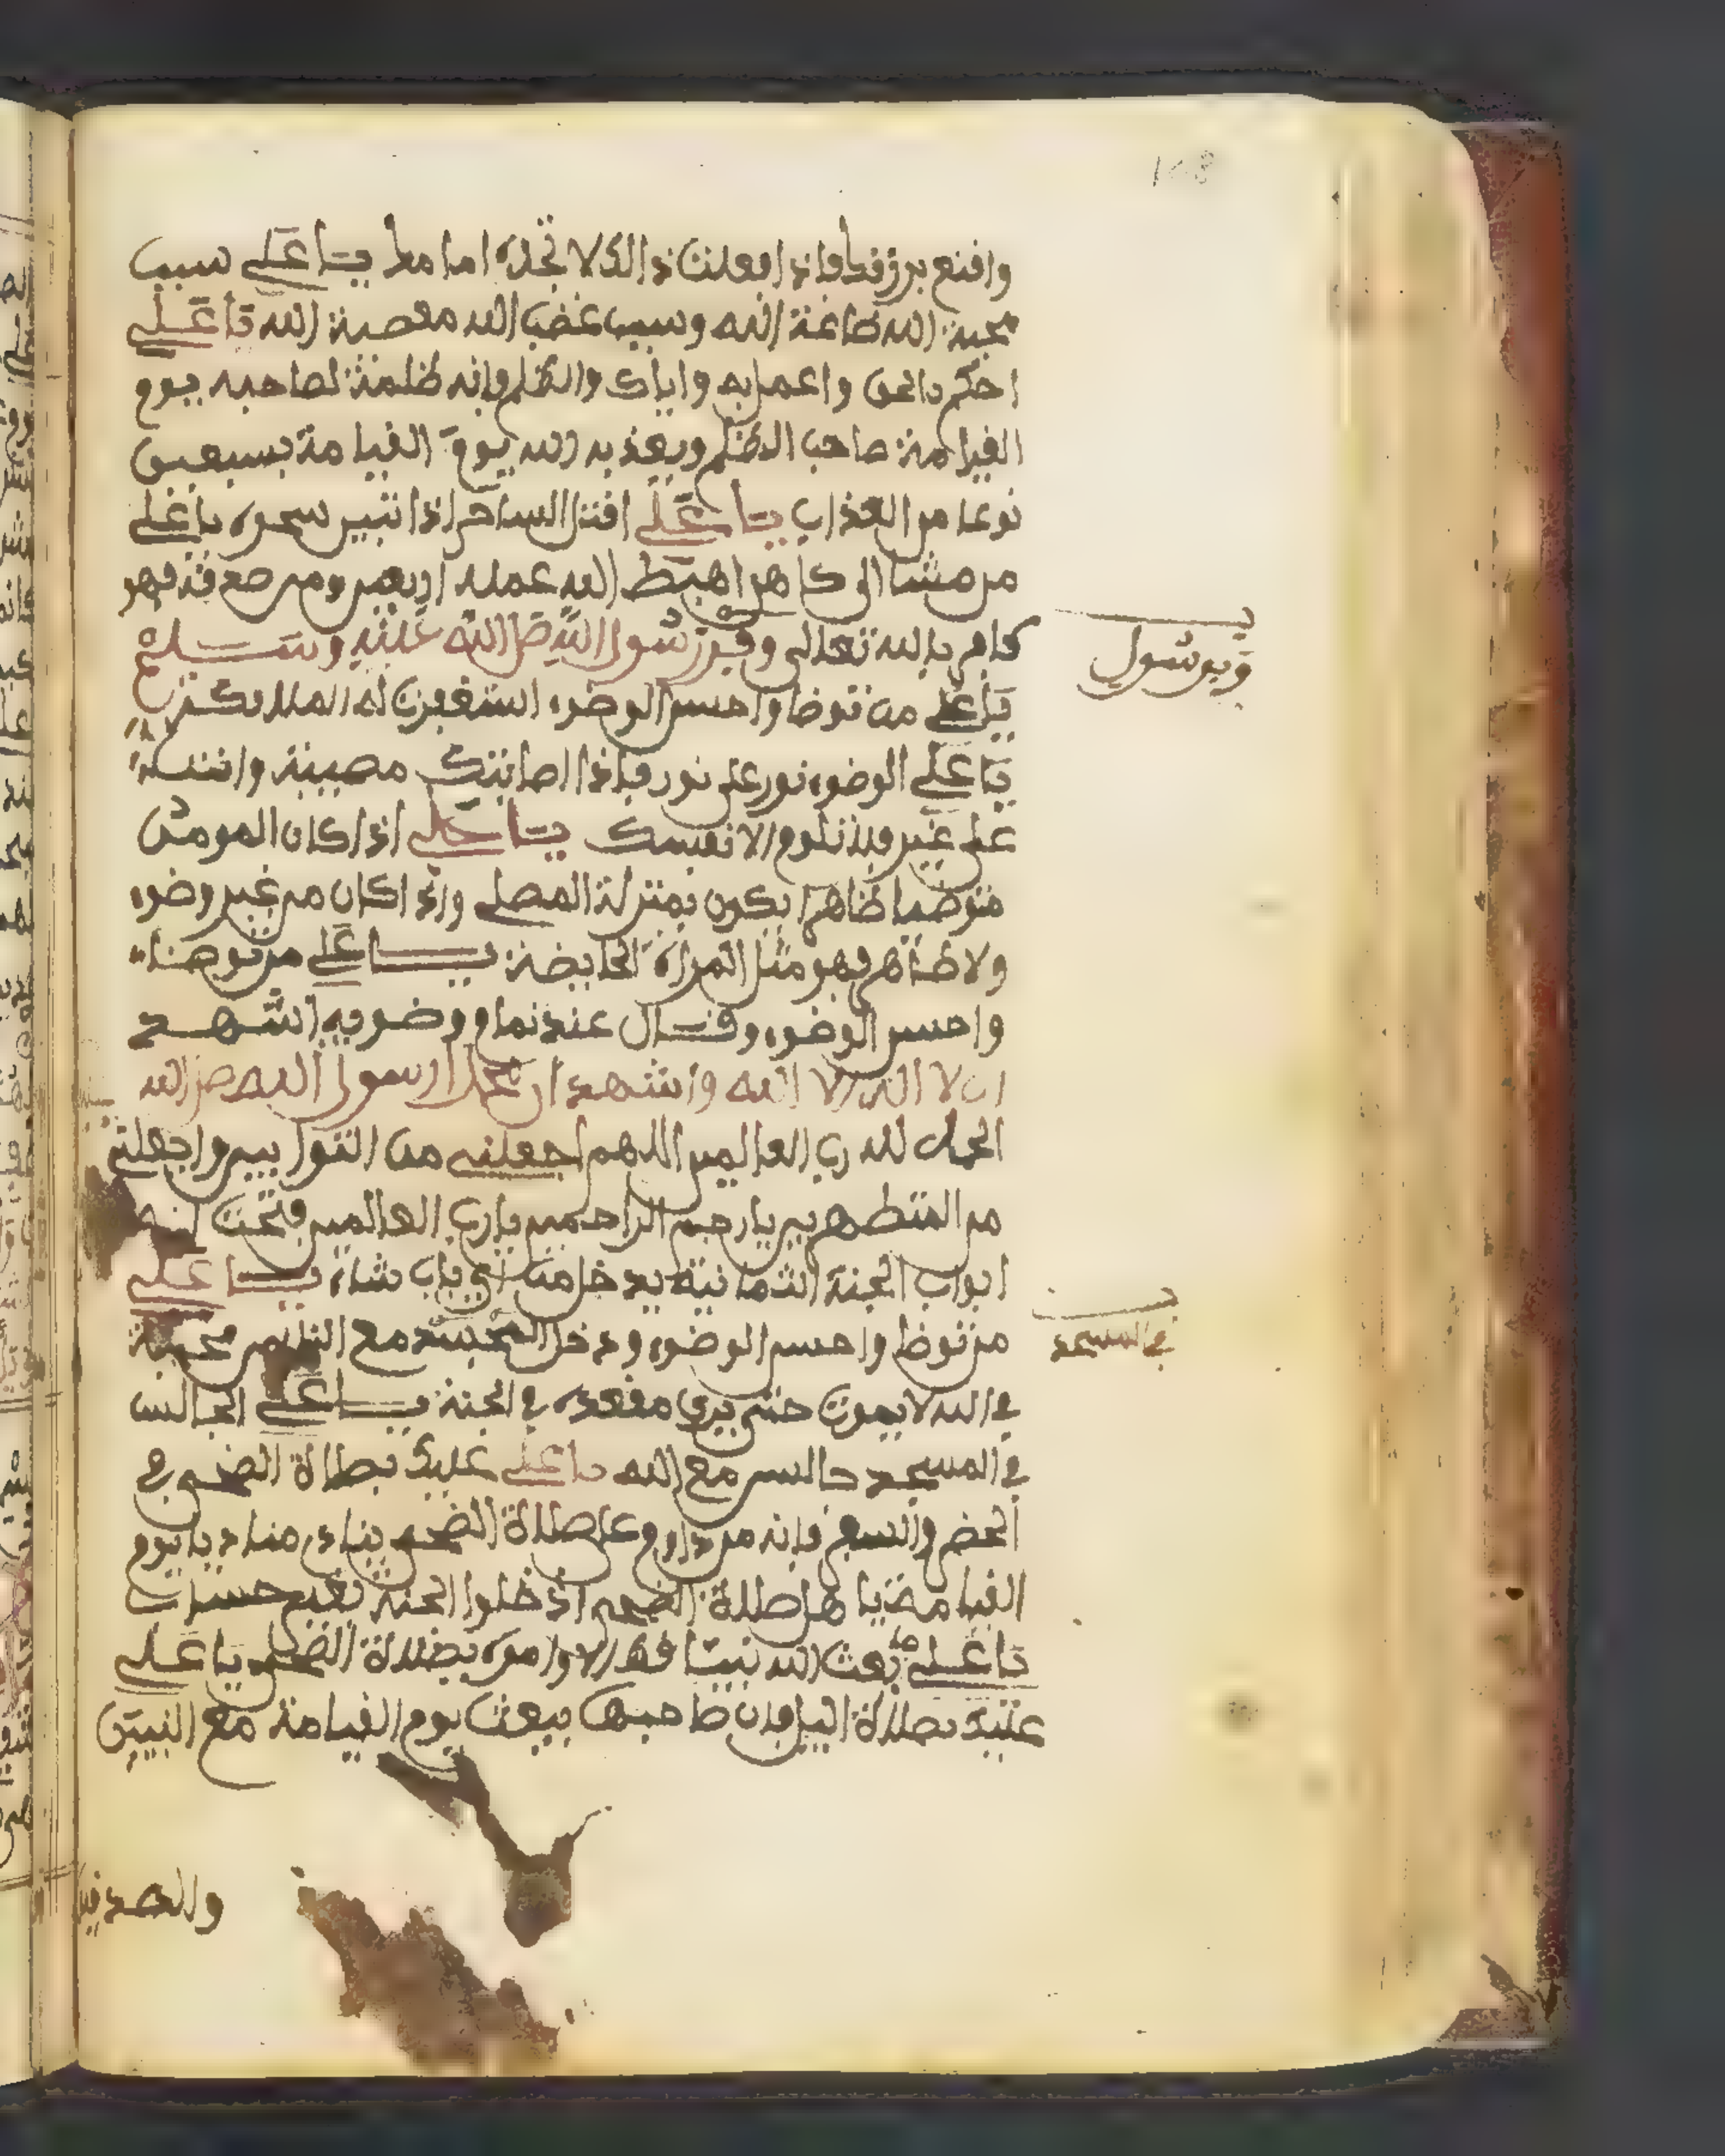 148
واقنع برزقك فاذا فعلت ذالك لا تجده امامك يا علي سبب
محبة الله طاعة الله وسبب غضب الله معصية الله يا علي
احكم بالحق واعمل به واياك والظلم فإنه ظلمة لصاحبه يوم
القيامة صاحب الظلم ويعذبه الله يوم القيامة بسبعين
نوعا من العذاب يا علي اقتل الساحر اذا تبين سحره يا علي
من مشا الى كاهن اهبط الله عمله اربعين ومن صدقه فهو
كافر بالله تعالى وقبر رسول الله صلى الله عليه وسلم
وبرسول
يا علي من توضا واحسن الوضوء استغفرت له الملايكة
يا علي الوضوء نور على نور فإذا اصابتك مصيبة وانت
على غير فلا تلوم الا نفسك يا علي اذا كان المومن
متوضيا ظاهرا يكون بمنزلة المصلي واذا كان من غير وضوء
ولا طاهر فهو مثل المراة الحايضة يا علي من توضاء
واحسن الوضوء وقال عند تمام وضويه اشهد
ان لا اله الا الله واشهد ان محمدا رسول الله صلى الله
الحمد لله رب العالمين اللهم اجعلني من التوابين واجعلني
من المتطهرين يارحم الراحمين يارب العالمين فتحت له
ابواب الجنة الثمانية يدخل من اي باب شاء يا علي
من توظا واحسن الوضوء ودخل المسجد مع الناس محبة
في المسجد
في الله لا يموت حتى يرى مقعده في الجنة يا علي الجالس
في المسجد جالس مع الله يا علي عليك بصلاة الضحى في
الحضر والسفر فإنه من داوم على صلاة الضحى ينادي مناديا يوم
القيامة يا هل صلاة الضحى ادخلوا الجنة بغير حساب
يا علي ما بعث الله نبيا قط الا وامره بصلاة الضحى يا علي
عليك بصلاة اليل فإن صاحبها يبعث يوم القيامة مع النبيين
والصدقين